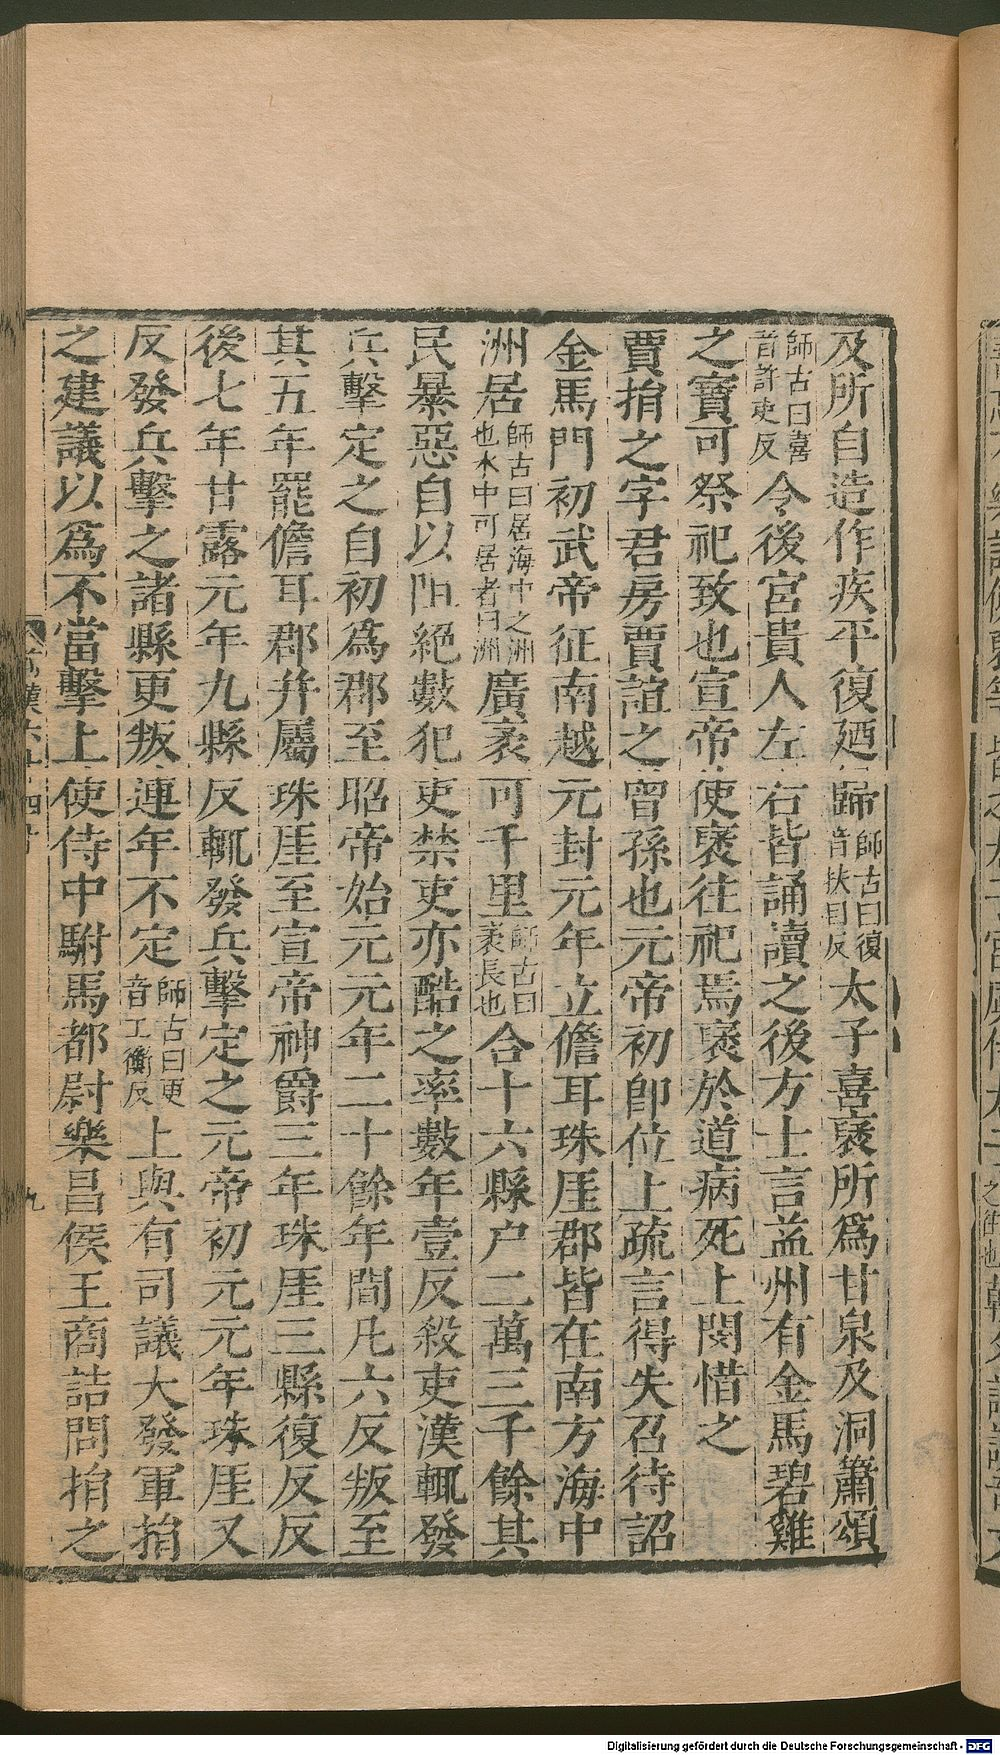 及所自造作疾平復廼歸師古曰復音扶目反太子喜襃所爲甘泉及洞簫頌
師古曰喜音許吏反令後宮貴人左右皆誦讀之後方士言益州有金馬碧雞
之寶可祭祀致也宣帝使襃往祀焉襃於道病死上閔惜之
賈捐之字君房賈誼之曾孫也元帝初卽位上疏言得失召待詔
金馬門初武帝征南越元封元年立儋耳珠厓郡皆在南方海中
洲居師古曰居海中之洲也水中可居者曰洲廣袤可千里師古曰袤長也合十六縣户二萬三千餘其
民暴惡自以阻絕數犯吏禁吏亦酷之率數年壹反殺吏漢輒發
兵擊定之自初爲郡至昭帝始元元年二十餘年間凡六反叛至
其五年罷儋耳郡并屬珠厓至宣帝神爵三年珠厓三縣復反反
後七年甘露元年九縣反輒發兵擊定之元帝初元元年珠厓又
反發兵擊之諸縣更叛連年不定師古曰更音工衡反上與有司議大發軍捐
之建議以爲不當擊上使侍中駙馬都尉樂昌侯王商詰問捐之
九
Digitalisierung gefördert durch die Deutsche Forschungsgemeinschaft - DFG